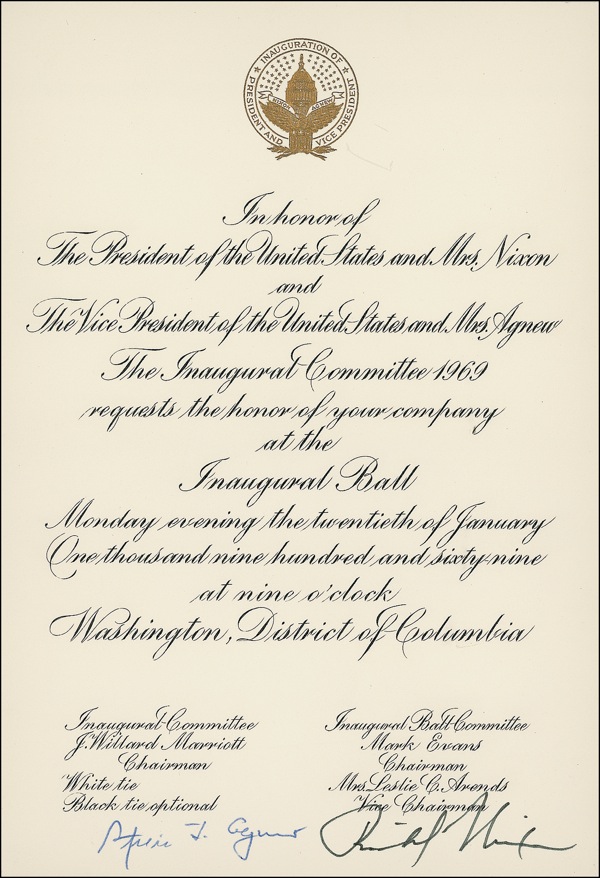 INAUGURATION OF
PRESIDENT AND VICE PRESIDENT
NIXON AGNEW
In honor of
The President of the United States and Mrs. Nixon
and
The Vice President of the United States and Mrs. Agnew
The Inaugural Committee 1969
requests the honor of your company
at the
Inaugural Ball
Monday evening the twentieth of January
One thousand nine hundred and sixty-nine
at nine o'clock
Washington, District of Columbia
Inaugural Committee
J. Willard Marriott
Chairman
White tie
Black tie, optional
Inaugural Ball Committee
Mark Evans
Chairman
Mrs. Leslie C. Arends
Vice Chairman
Spiro T. Agnew
Richard Nixon